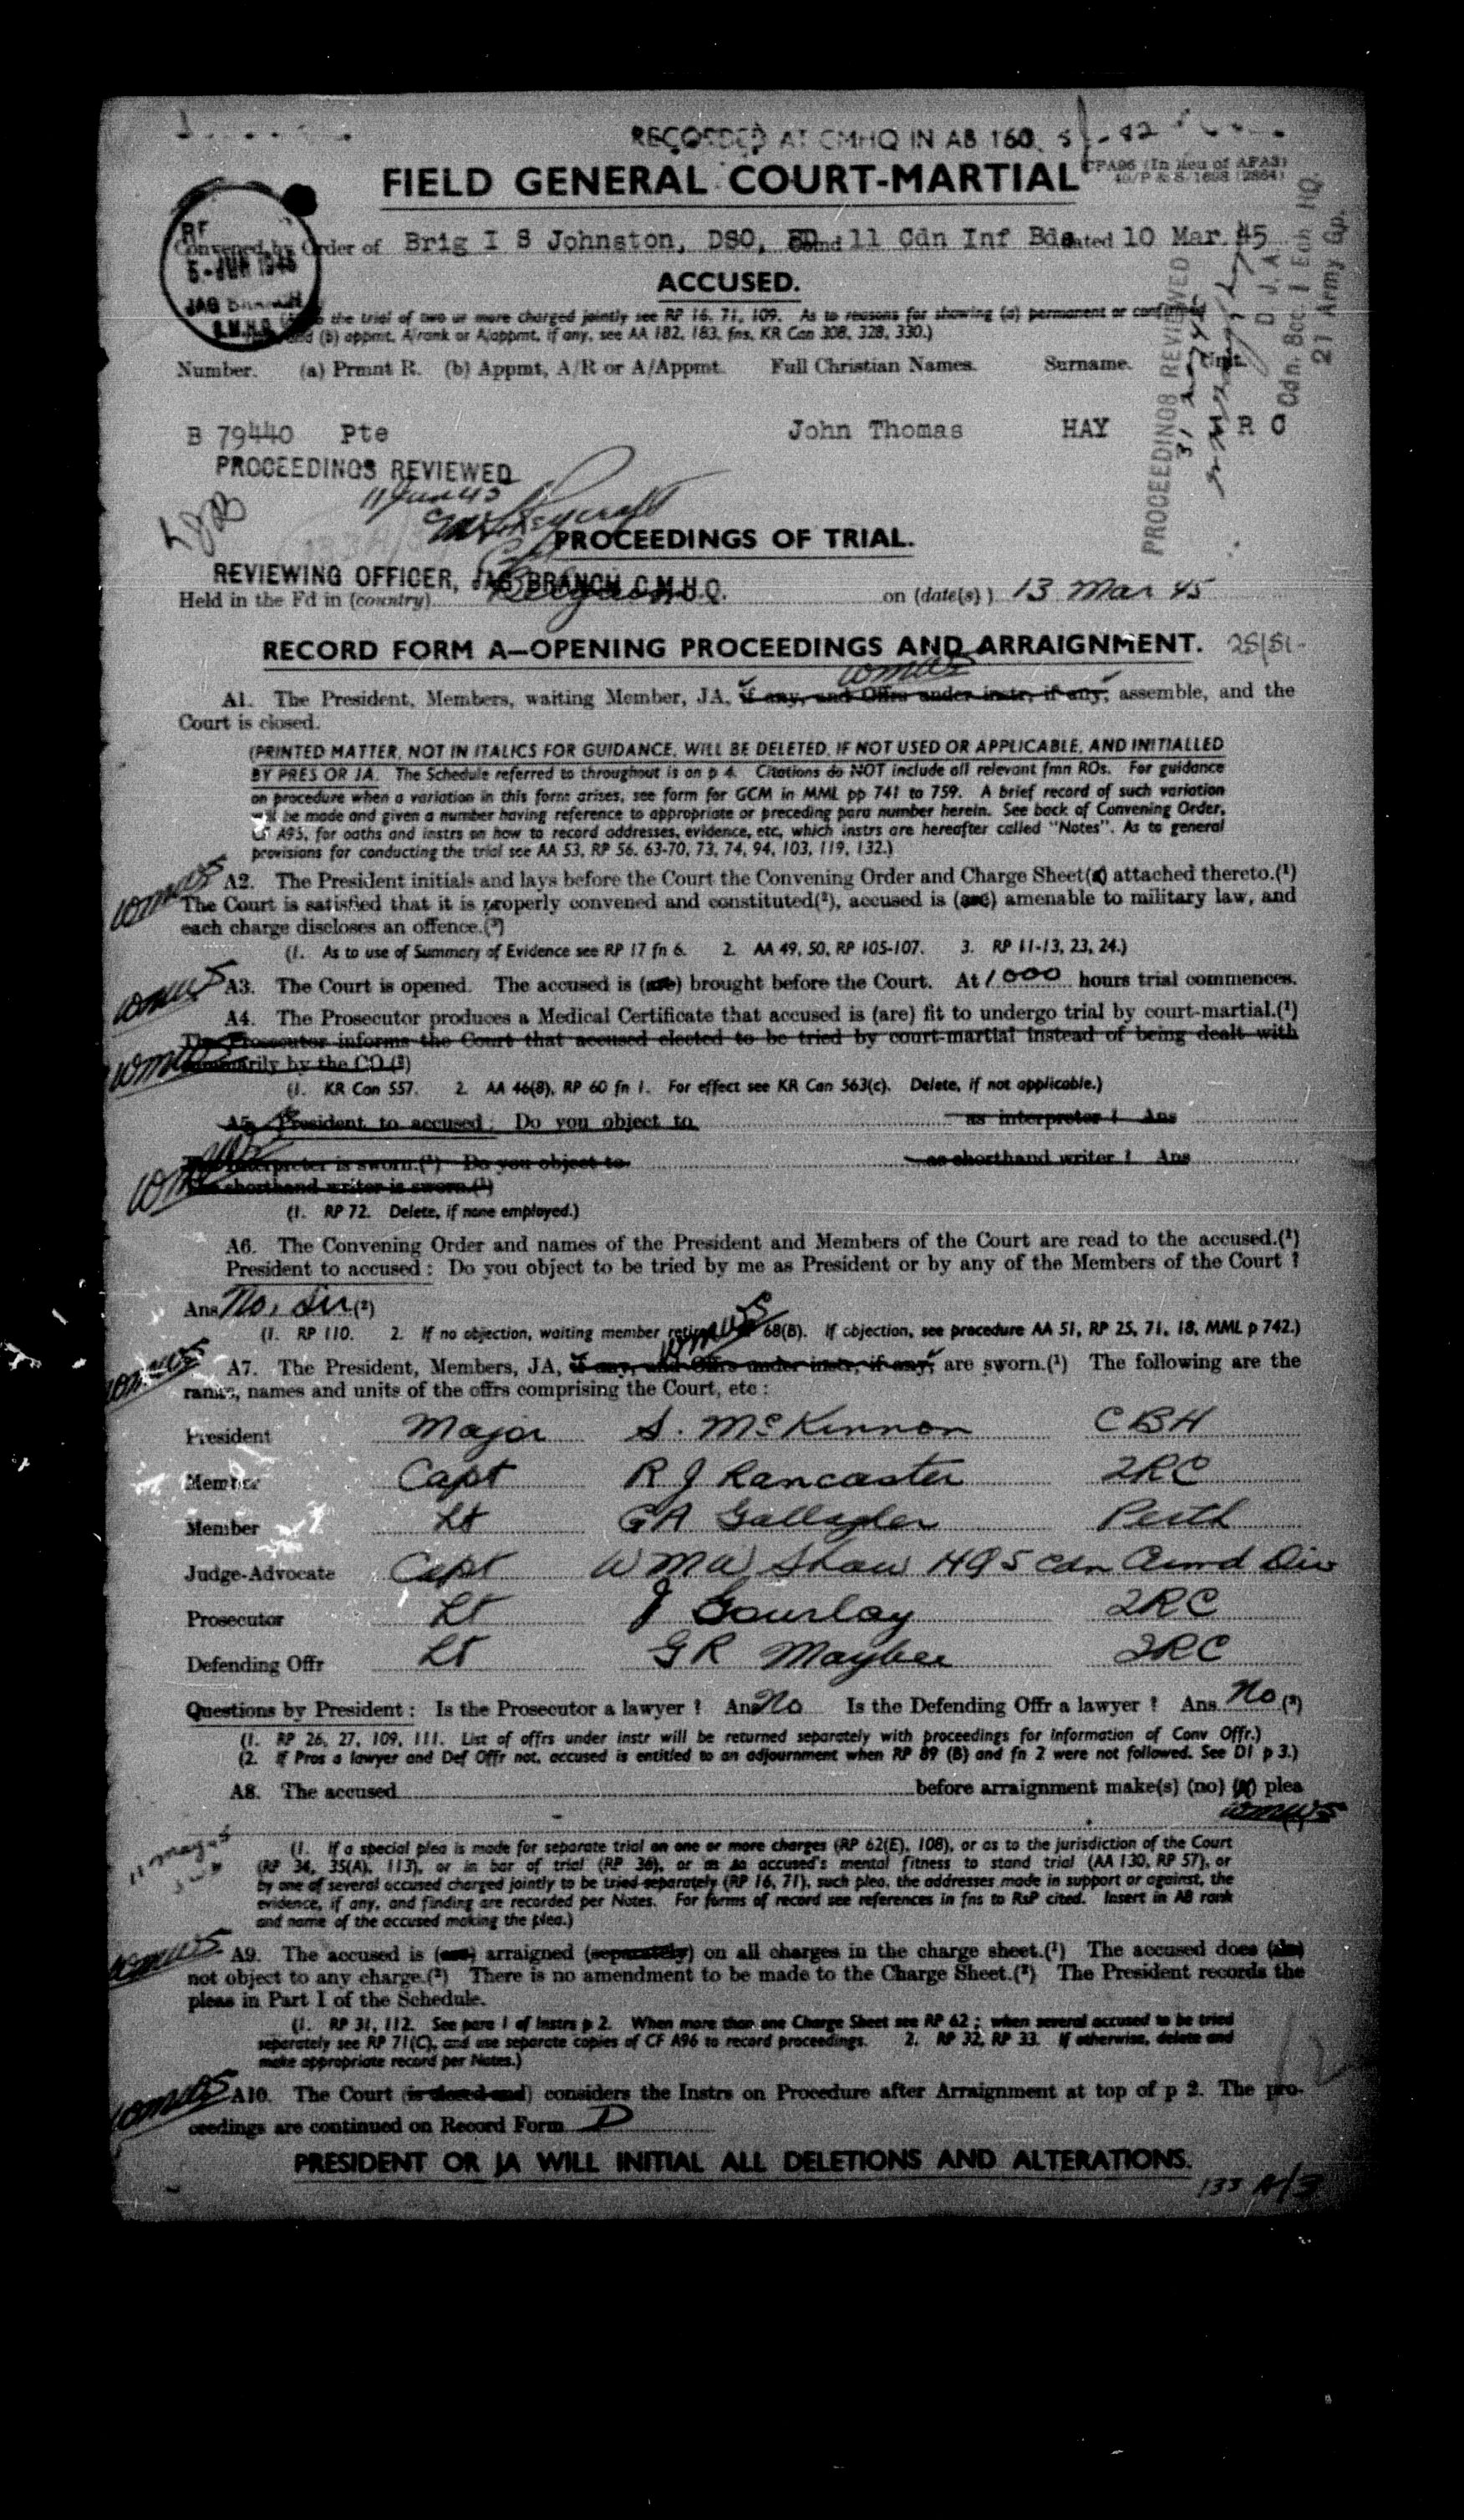 RECORDED AT CMHQ IN AB 160.
CFA96 (In lieu of AFA3)
40/P & S/1698 (2864)
FIELD GENERAL COURT-MARTIAL
Convened by Order of Brig I S Johnston, DSO, ED Comd 11 Cdn Inf Bde dated 10 Mar 45
ACCUSED.
the trial of two or more charged jointly see RP 16, 71, 109. As to reasons for showing (a) permanent or confirmed
and (b) appmt, A/rank or A/appmt, if any, see AA 182, 183, fns, KR Can 308, 328, 330.)
Number. (a) Prmnt R. (b) Appmt, A/R or A/Appmt. Full Christian Names. Surname. Unit.
B 79440 Pte John Thomas HAY R C
PROCEEDINGS REVIEWED
D J A
Cdn. Sec. 1 Ech HQ.
21 Army Gp.
PROCEEDINGS REVIEWED
11 Jun 45
PROCEEDINGS OF TRIAL.
REVIEWING OFFICER, JAG BRANCH C.M.H.Q.
Held in the Fd in (country) on (date(s)) 13 Mar 45
RECORD FORM A—OPENING PROCEEDINGS AND ARRAIGNMENT.
wmws
A1. The President, Members, waiting Member, JA, if any, and Offrs under instr, if any, assemble, and the
Court is closed.
(PRINTED MATTER, NOT IN ITALICS FOR GUIDANCE, WILL BE DELETED, IF NOT USED OR APPLICABLE, AND INITIALLED
BY PRES OR JA. The Schedule referred to throughout is on p 4. Citations do NOT include all relevant fmn ROs. For guidance
on procedure when a variation in this form arises, see form for GCM in MML pp 741 to 759. A brief record of such variation
will be made and given a number having reference to appropriate or preceding para number herein. See back of Convening Order,
CF A95, for oaths and instrs on how to record addresses, evidence, etc, which instrs are hereafter called "Notes". As to general
provisions for conducting the trial see AA 53, RP 56, 63-70, 73, 74, 94, 103, 119, 132.)
wmws A2. The President initials and lays before the Court the Convening Order and Charge Sheet(s) attached thereto.(¹)
The Court is satisfied that it is properly convened and constituted(²), accused is (are) amenable to military law, and
each charge discloses an offence.(³)
(1. As to use of Summary of Evidence see RP 17 fn 6. 2. AA 49, 50, RP 105-107. 3. RP 11-13, 23, 24.)
wmws A3. The Court is opened. The accused is (are) brought before the Court. At 1000 hours trial commences.
A4. The Prosecutor produces a Medical Certificate that accused is (are) fit to undergo trial by court-martial.(¹)
The Prosecutor informs the Court that accused elected to be tried by court-martial instead of being dealt with
wmws summarily by the CO.(²)
(1. KR Can 557. 2. AA 46(8), RP 60 fn 1. For effect see KR Can 563(c). Delete, if not applicable.)
A5. President to accused: Do you object to as interpreter ? Ans
The interpreter is sworn.(¹) Do you object to as shorthand writer ? Ans
wmws The shorthand writer is sworn.(¹)
(1. RP 72. Delete, if none employed.)
A6. The Convening Order and names of the President and Members of the Court are read to the accused.(¹)
President to accused : Do you object to be tried by me as President or by any of the Members of the Court ?
Ans No, Sir (²)
(1. RP 110. 2. If no objection, waiting member 68(B). If objection, see procedure AA 51, RP 25, 71, 18, MML p 742.)
wmws A7. The President, Members, JA, if any, and Offrs under instr, if any, are sworn.(¹) The following are the
ranks, names and units of the offrs comprising the Court, etc :
President Major S. McKinnon CBH
Member Capt R J Lancaster 2RC
Member Lt GA Gallagher Perth
Judge-Advocate Capt WMW Shaw HQ 5 Cdn Armd Div
Prosecutor Lt J Gourlay 2RC
Defending Offr Lt GR Maybee 2RC
Questions by President : Is the Prosecutor a lawyer ? Ans No Is the Defending Offr a lawyer ? Ans No (²)
(1. RP 26, 27, 109, 111. List of offrs under instr will be returned separately with proceedings for information of Conv Offr.)
(2. If Pros a lawyer and Def Offr not, accused is entitled to an adjournment when RP 89 (B) and fn 2 were not followed. See D1 p 3.)
A8. The accused before arraignment make(s) (no) (a) plea
wmws
(1. If a special plea is made for separate trial on one or more charges (RP 62(E), 108), or as to the jurisdiction of the Court
(RP 34, 35(A), 113), or in bar of trial (RP 36), or as to accused's mental fitness to stand trial (AA 130, RP 57), or
by one of several accused charged jointly to be tried separately (RP 16, 71), such plea, the addresses made in support or against, the
evidence, if any, and finding are recorded per Notes. For forms of record see references in fns to RsP cited. Insert in A8 rank
and name of the accused making the plea.)
wmws A9. The accused is (are) arraigned (separately) on all charges in the charge sheet.(¹) The accused does (do)
not object to any charge.(²) There is no amendment to be made to the Charge Sheet.(²) The President records the
pleas in Part I of the Schedule.
(1. RP 31, 112. See para 1 of Instrs p 2. When more than one Charge Sheet see RP 62 ; when several accused to be tried
separately see RP 71(C), and use separate copies of CF A96 to record proceedings. 2. RP 32, RP 33. If otherwise, delete and
make appropriate record per Notes.)
wmws A10. The Court (is closed and) considers the Instrs on Procedure after Arraignment at top of p 2. The pro-
ceedings are continued on Record Form D
PRESIDENT OR JA WILL INITIAL ALL DELETIONS AND ALTERATIONS.